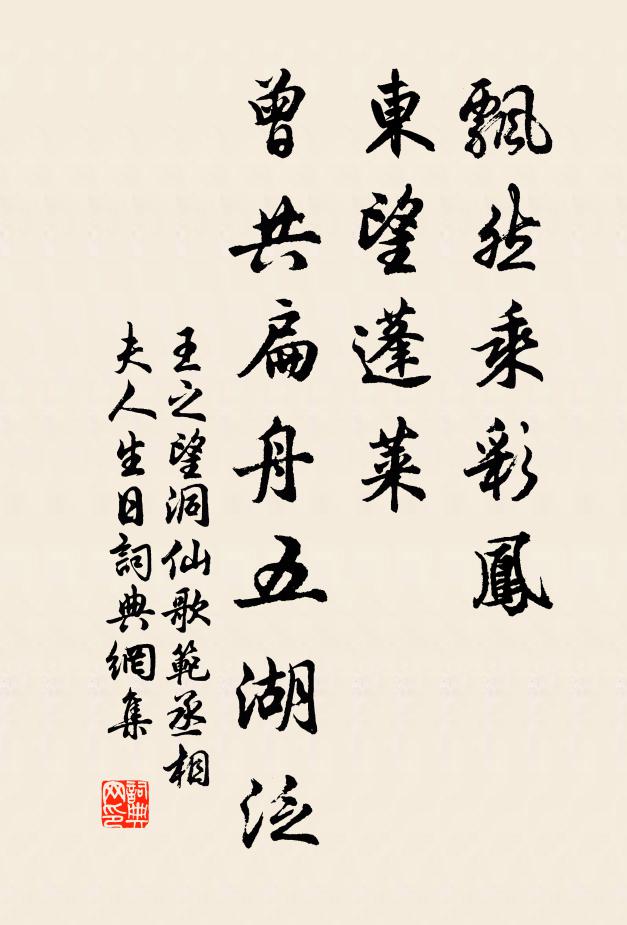 飄然乘彩鳳
東望蓬萊
曾共扁舟五湖泛
王之望洞仙歌範丞相
夫人生日詞典網集
詞典
网印